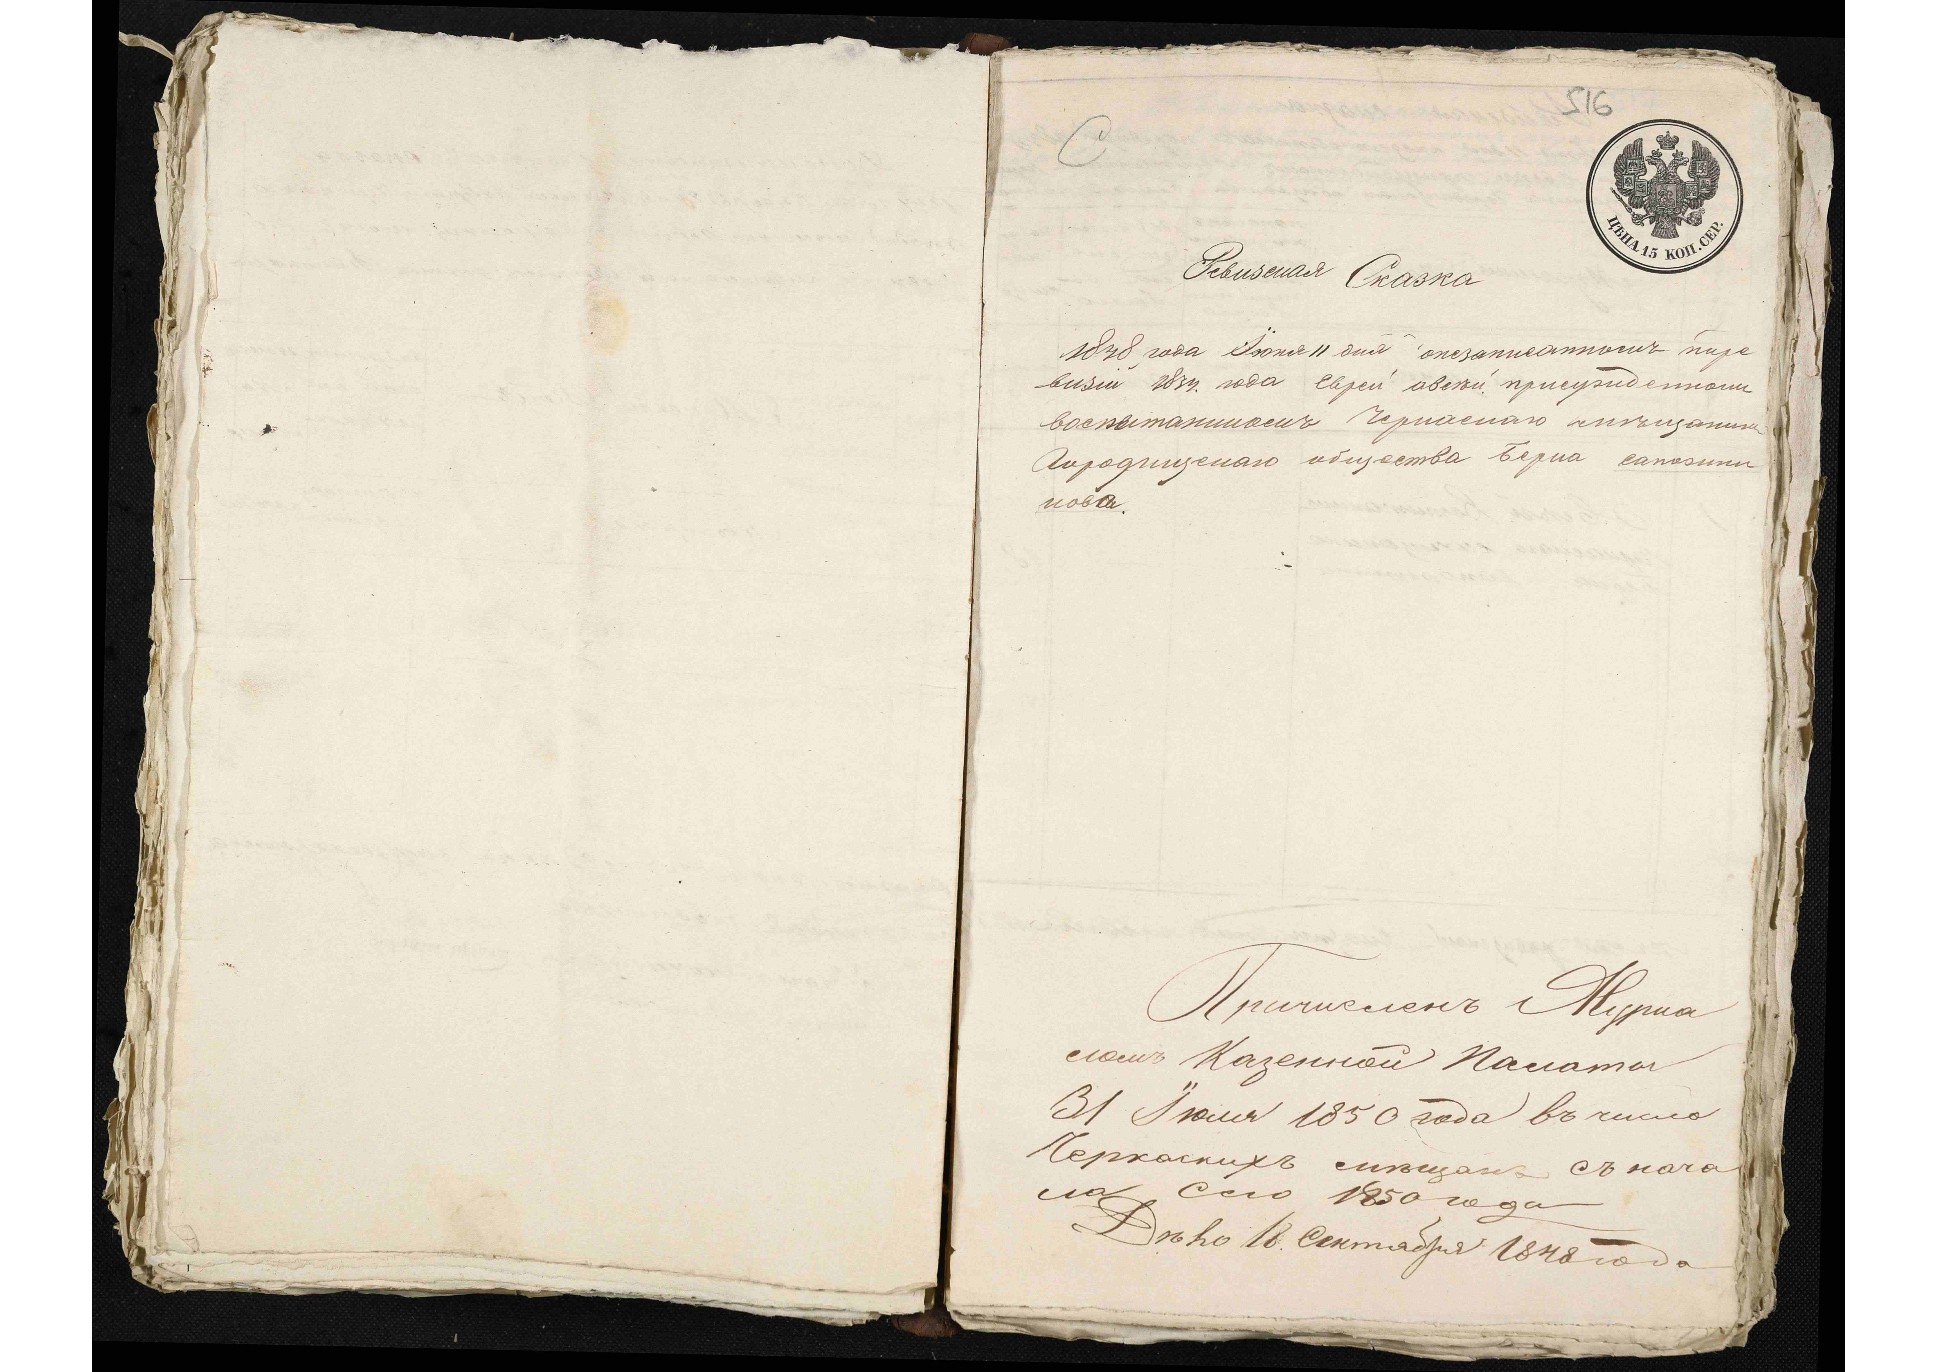 516
С
ЦѢНА 15 КОП. СЕР.
Ревизская Сказка
1848 года Іюня 11 дня онезаписанномъ поре
визіи 1834. года Еврей присужденномъ
воспитанникомъ Черкаскаго мѣщанина
Городищскаго общества Берка сапожни
кова.
Причисленъ Журна
ломъ Казенной Палаты
31 Іюля 1850 года въ число
Черкаскихъ мѣщанъ съ нача
ла сего 1850 года
Дѣло 18. Сентября 1848 года